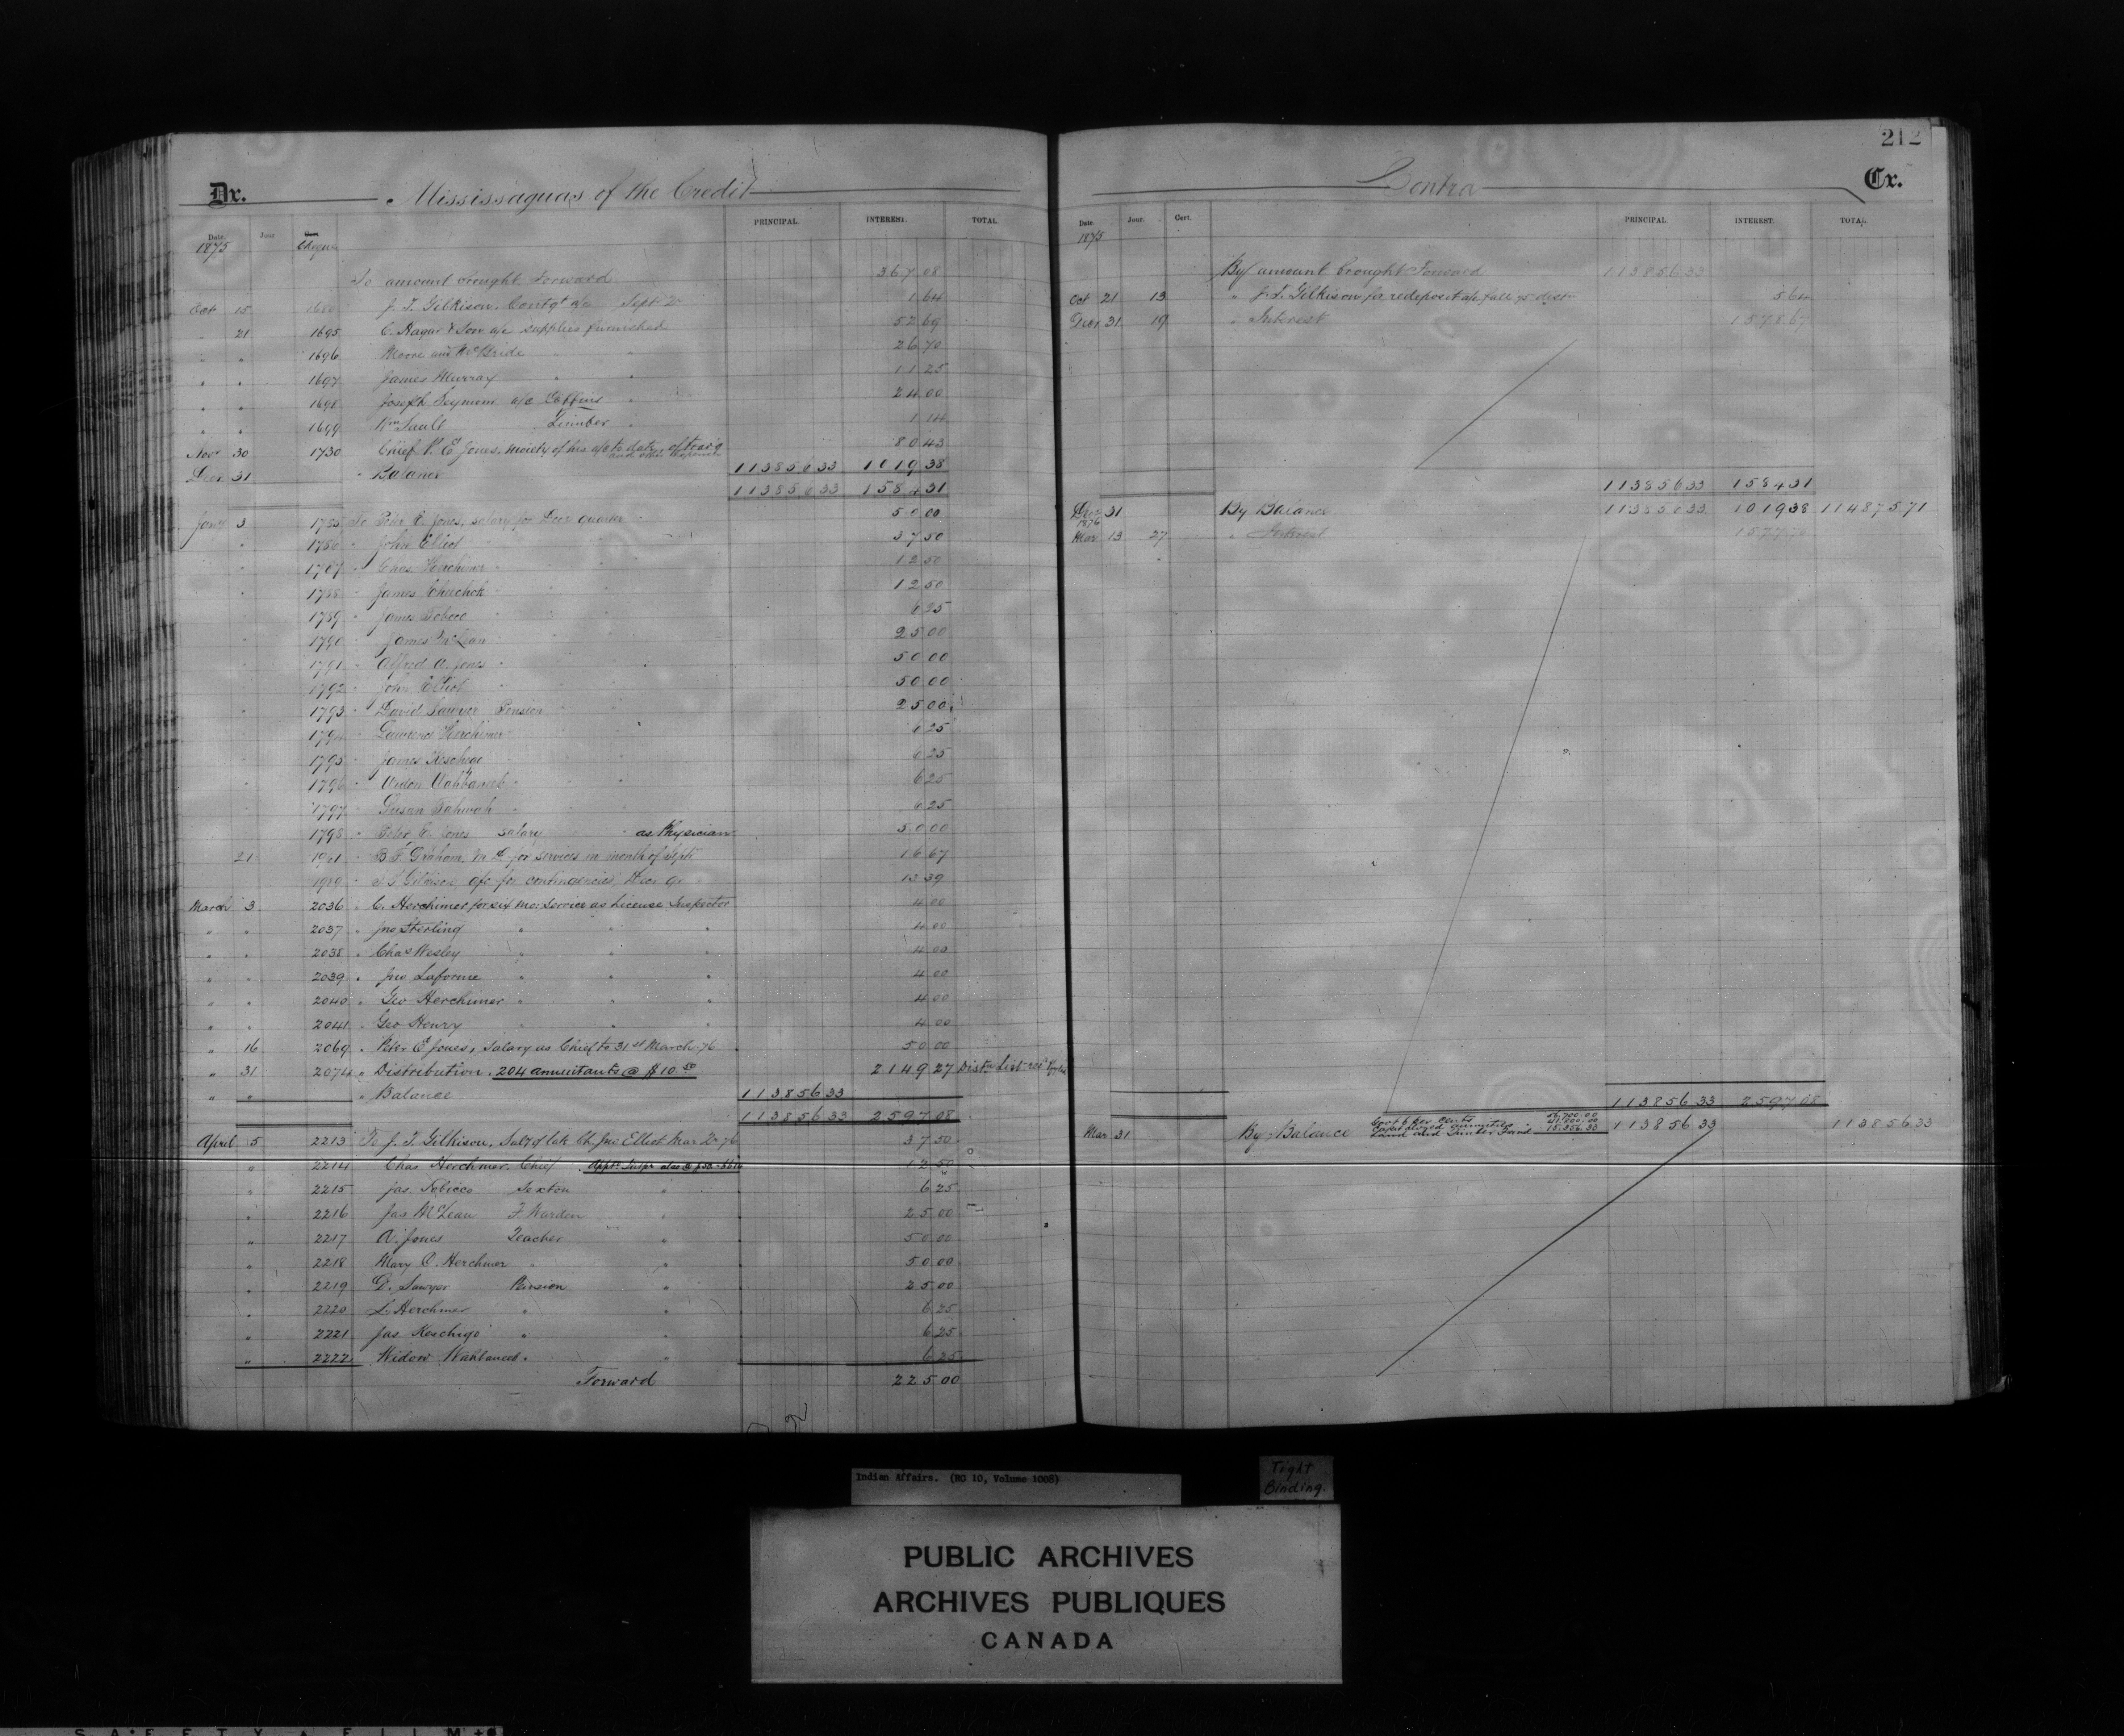 212
Dr. Mississaguas of the Credit
Date. Jour Cert PRINCIPAL INTEREST. TOTAL
1875 Cheque
To amount brought Forward 367 08
Oct 15 J. T. Gilkison, Contgt a/c Septr Qr 1 64
" 21 1695 C. Hagar & Son a/c supplies furnished 52 69
" " 1696 Moore and McBride " " 26 70
" " 1697 James Murray " " 11 25
" " 1698 Joseph Seymour a/c Coffins " 24 00
" " 1699 Wm Sault Timber " 1 14
Nov 30 1730 Chief P. E. Jones, moiety of his a/c to date of travg and other expenses 80 43
Decr 31 " Balance 113856 33 1019 38
113856 33 1584 31
Jany 3 1785 To Peter E. Jones, salary for Decr quarter 50 00
" 1786 " John Elliot " " 37 50
" 1787 " Chas Herchimer " " 12 50
" 1788 " James Chechok " " 12 50
" 1789 " James Tobeco " " 6 25
" 1790 " James McLean " " 25 00
" 1791 " Alfred A. Jones " 50 00
" 1792 " John Elliot " 50 00
" 1793 " David Sawyer Pension " 25 00
" 1794 " Lawrence Herchimer " 6 25
" 1795 " James Keschego 6 25
" 1796 " Widow Wahbaneeb " 6 25
" 1797 " Susan Tahwah " 6 25
1798 " Peter E. Jones salary " as Physician 50 00
21 1961 " B. F. Graham, M.D. for services in month of Septr 16 67
1989 " J. T. Gilkison, a/c for contingencies, Decr Qr 13 39
March 3 2036 " C. Herchimer for six mo: service as License Inspector 4 00
" " 2037 " Jno Sterling " " " 4 00
" " 2038 " Chas Wesley " " " 4 00
" " 2039 " Jno Laforme " " " 4 00
" " 2040 " Geo Herchimer " " " 4 00
" " 2041 " Geo Henry " " " 4 00
" 16 2069 " Peter E. Jones, salary as Chief to 31st March 76 50 00
" 31 2074 " Distribution. 204 annuitants @ $10.50 2149 27
" " " Balance 113856 33
113856 33 2597 08
April 5 2213 To J. T. Gilkison, Saly of late Ch. Jno Elliot Mar Qr 76 37 50
" 2214 Chas Herchmer, Chief 12 50
" 2215 Jas. Tobicco Sexton " 6 25
" 2216 Jas McLean F. Warden " 25 00
" 2217 A. Jones Teacher " 50 00
" 2218 Mary C. Herchmer " " 50 00
" 2219 D. Sawyer Pension " 25 00
" 2220 L. Herchmer " " 6 25
" 2221 Jas Keschigo " " 6 25
" 2222 Widow Wahbaneeb " " 6 25
Forward 225 00
Contra Cr.
Date. Jour. Cert. PRINCIPAL. INTEREST. TOTAL
1875
By amount brought Forward 113856 33
Oct 21 13 " J. T. Gilkison for redeposit 5 64
Decr 31 19 " Interest 1578 67
113856 33 1584 31
Decr 31 By Balance 113856 33 1019 38 114875 71
1876
Mar 13 27 " Interest 1577 70
113856 33 2597 08
Mar 31 By Balance 113856 33 113856 33
Indian Affairs. (RG 10, Volume 1008)
Tight
Binding.
PUBLIC ARCHIVES
ARCHIVES PUBLIQUES
CANADA
SAFETY FILM